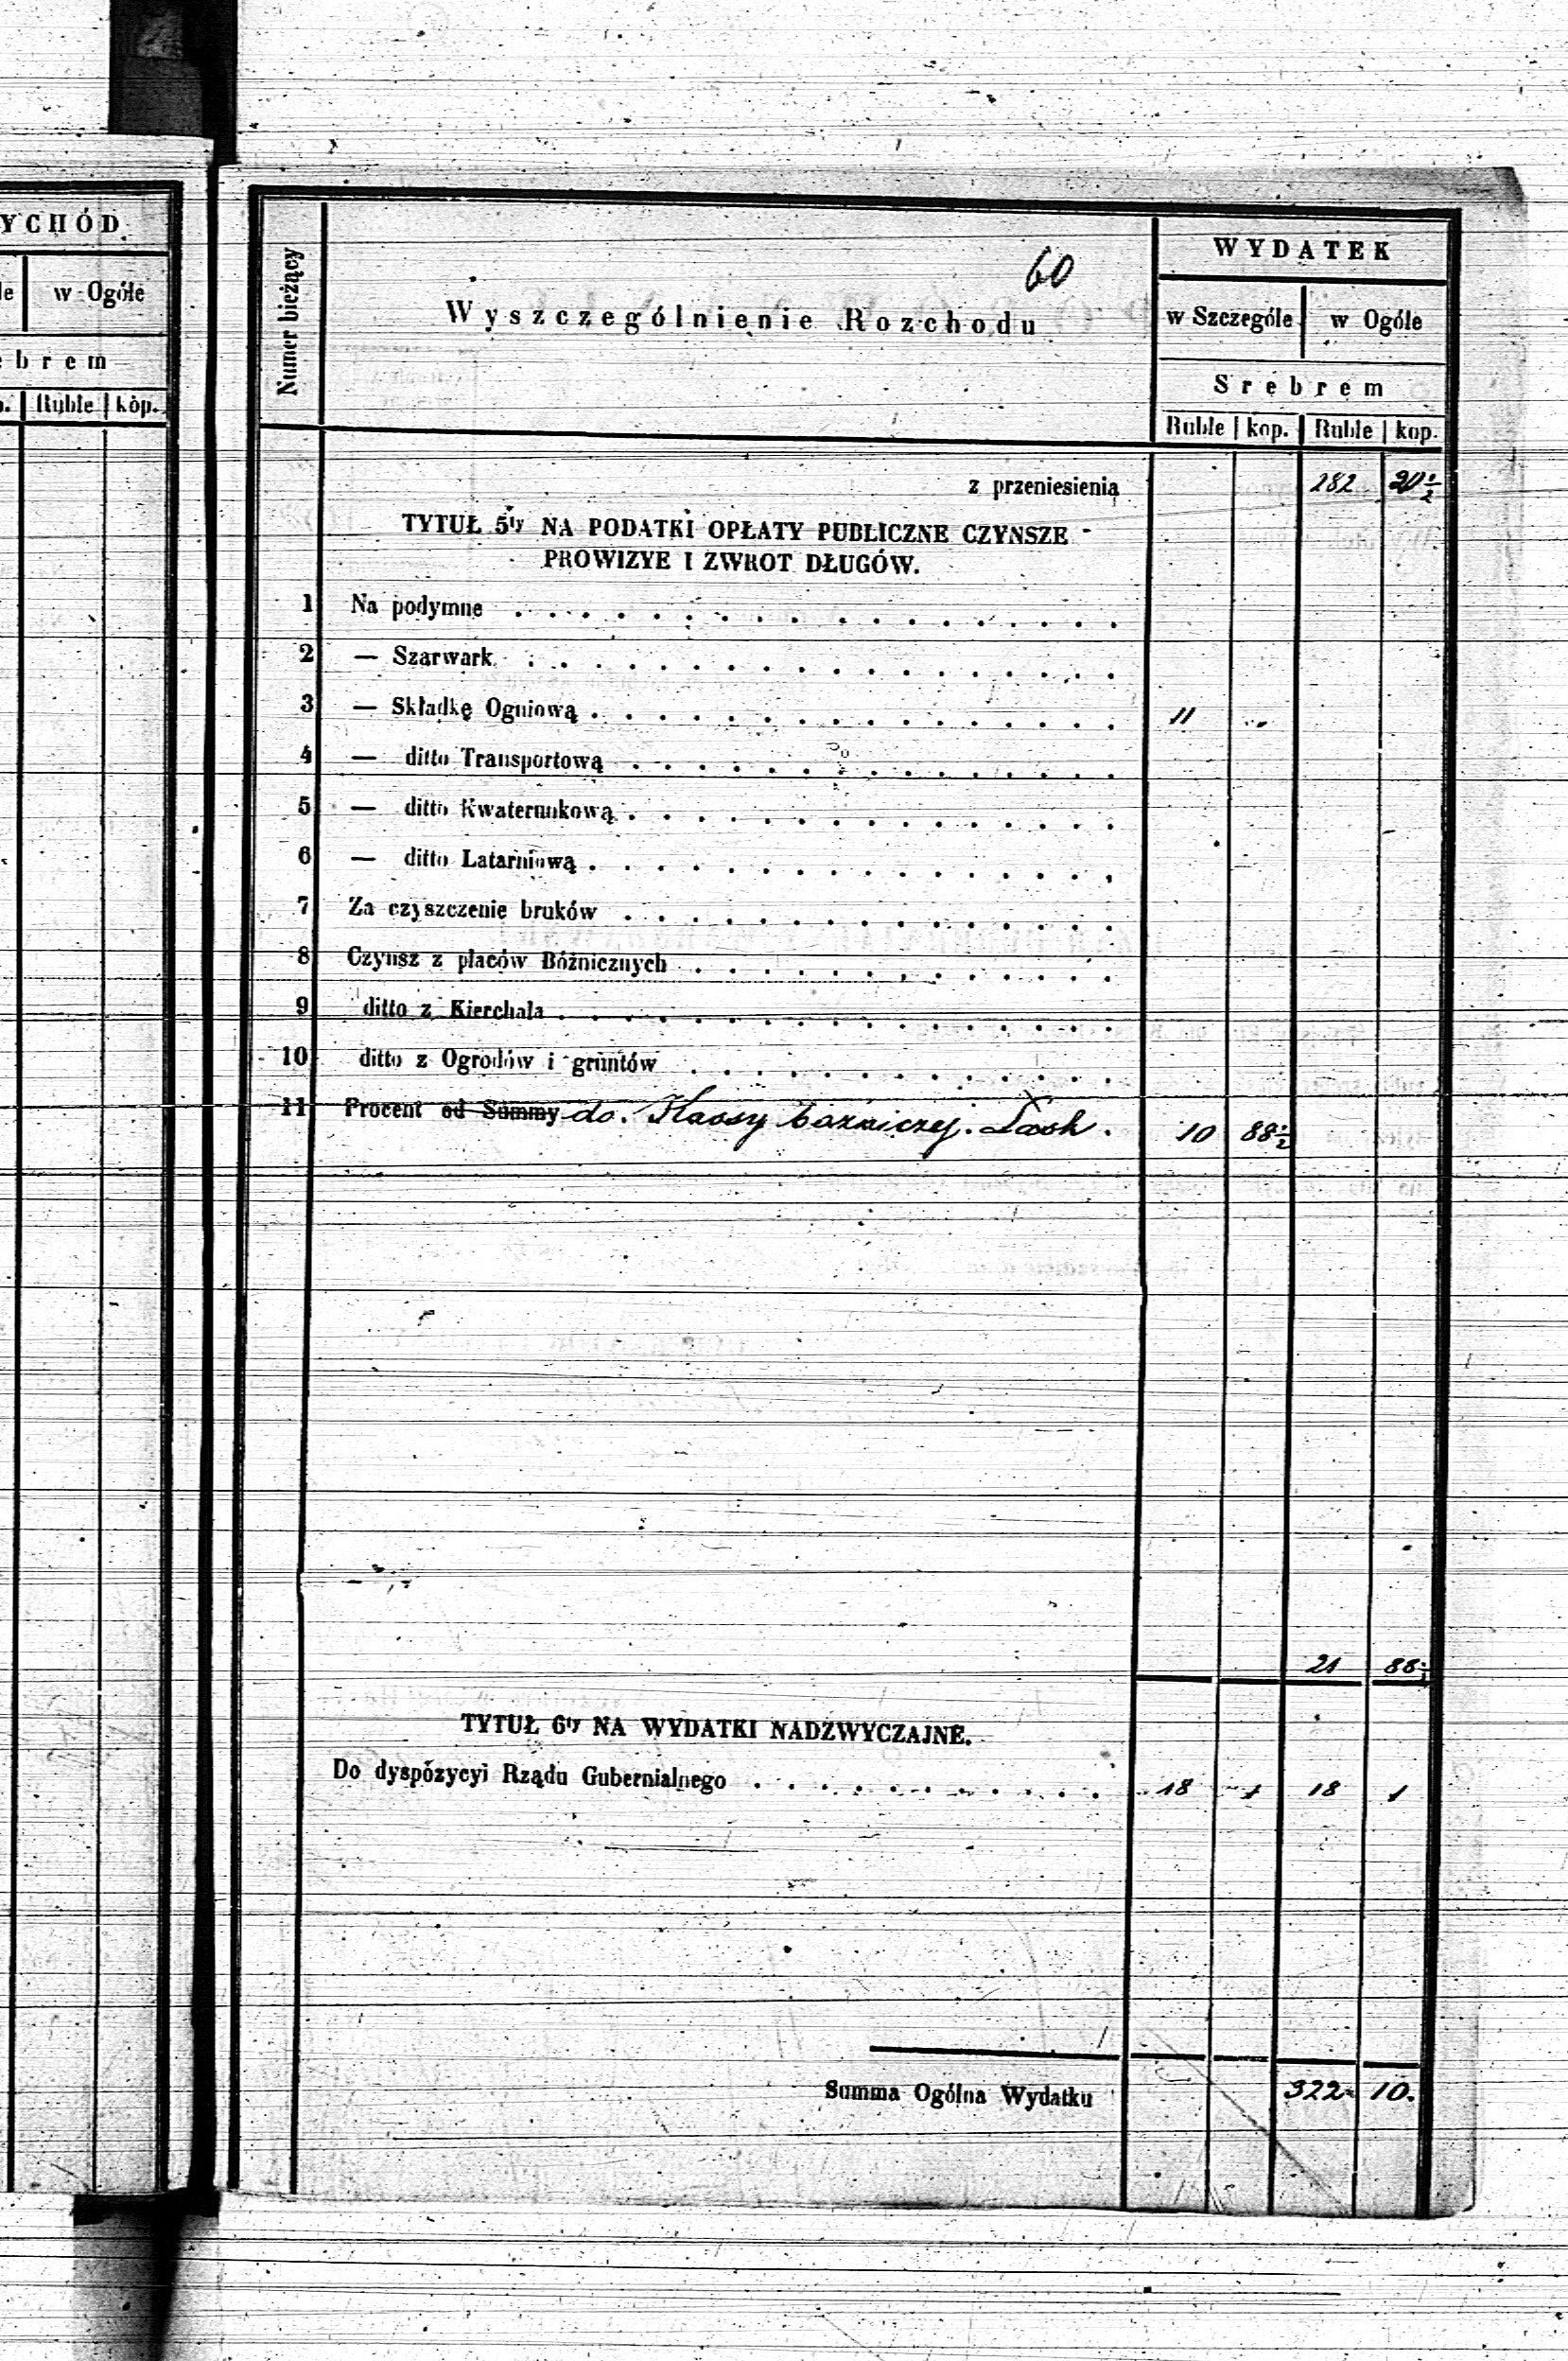 YCHÓD
le w Ogóle
ebrem
p. Ruble kop.
60
WYDATEK
Numer bieżący
Wyszczególnienie Rozchodu
w Szczególe w Ogóle
Srebrem
Ruble kop. Ruble kop.
z przeniesienia 282 20½
TYTUŁ 5ty NA PODATKI OPŁATY PUBLICZNE CZYNSZE
PROWIZYE I ZWROT DŁUGÓW.
1 Na podymne
2 — Szarwark
3 — Składkę Ogniową 11 "
4 — ditto Transportową
5 — ditto Kwaterunkową
6 — ditto Latarniową
7 Za czyszczenie bruków
8 Czynsz z placów Bóżnicznych
9 ditto z Kierchala
10 ditto z Ogrodów i gruntów
11 Procent od Summy do Kassy 10 88½
21 88½
TYTUŁ 6ty NA WYDATKI NADZWYCZAJNE.
Do dyspózycyi Rządu Gubernialnego 18 1 18 1
Summa Ogólna Wydatku 322 10.